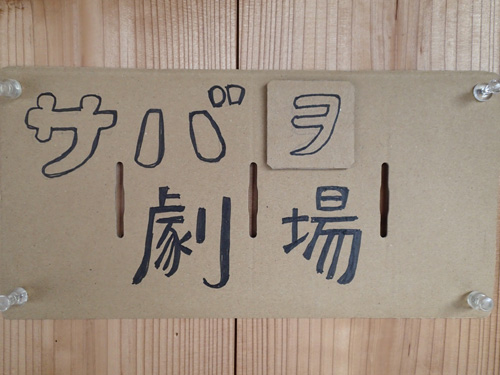 サバヲ
劇場